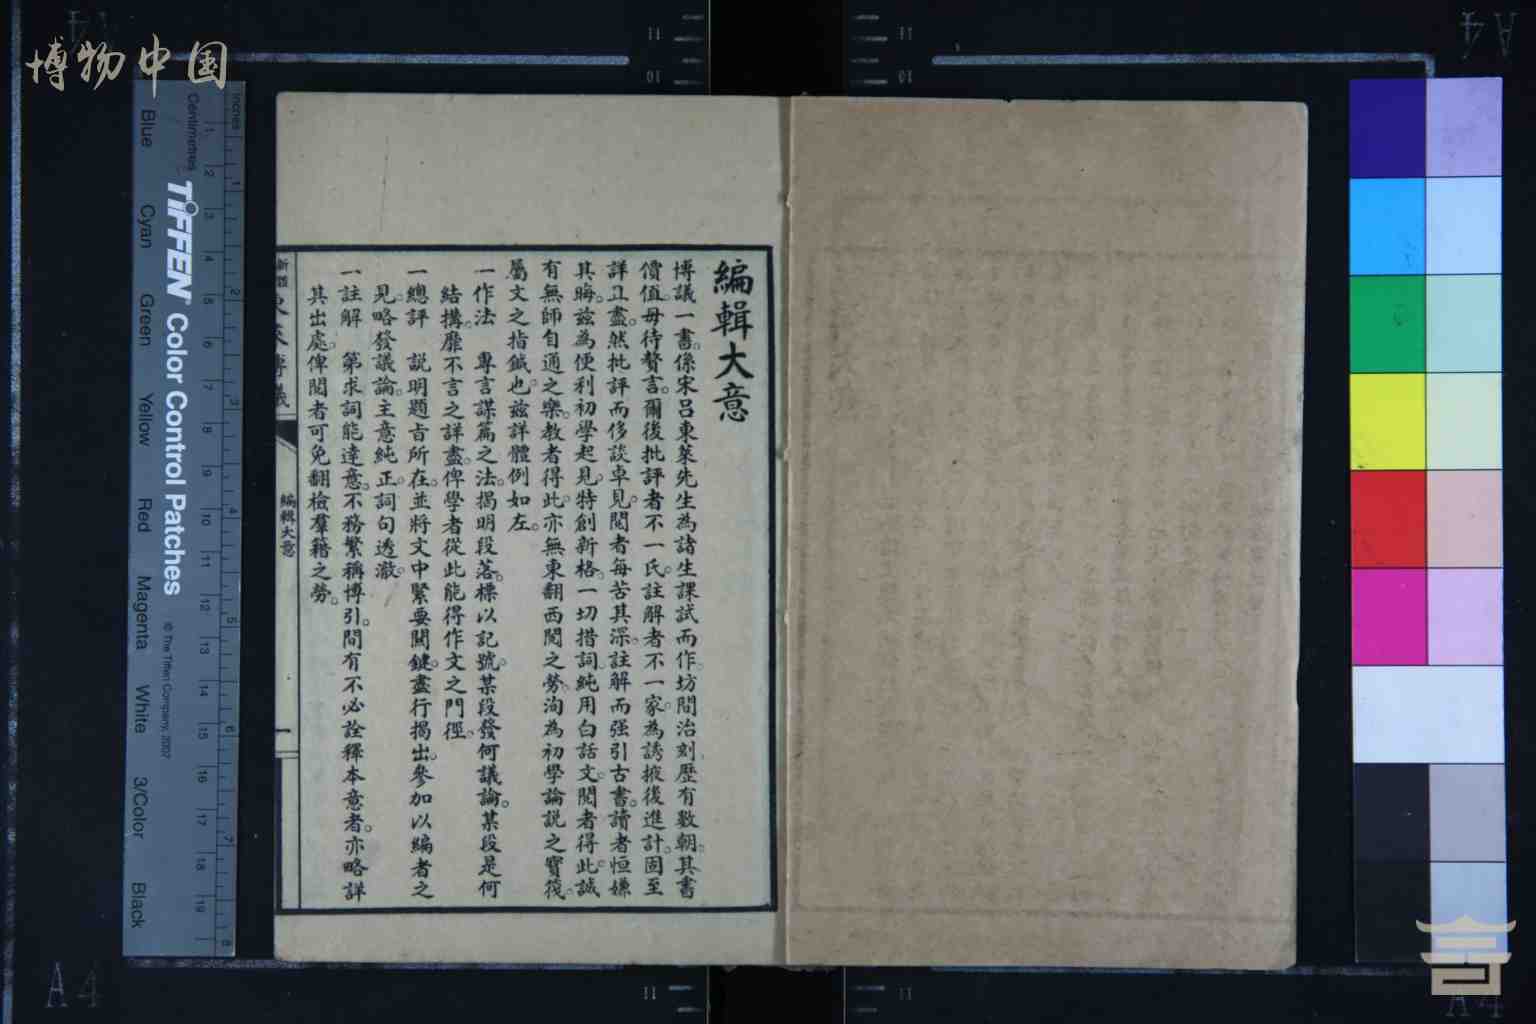 博物中国
編輯大意
博議一書。係宋呂東萊先生為諸生課試而作。坊間治刻歷有數朝。其書
價值。毋待贅言。爾後批評者不一氏。註解者不一家。為誘掖後進計。固至
詳且盡。然批評而侈談卓見。閱者每苦其深。註解而强引古書。讀者恒嫌
其晦。茲為便利初學起見。特創新格。一切措詞。純用白話文。閱者得此。誠
有無師自通之樂。教者得此。亦無東翻西閱之勞。洵為初學論説之寶筏。
屬文之指鍼也。茲詳體例如左。
一作法 專言謀篇之法。揭明段落。標以記號。某段發何議論。某段是何
結搆。靡不言之詳盡。俾學者從此能得作文之門徑。
一總評 説明題旨所在。並將文中緊要關鍵。盡行揭出。參加以編者之
見。略發議論。主意純正。詞句透澈。
一註解 第求詞能達意。不務繁稱博引。間有不必詮釋本意者。亦略詳
其出處。俾閱者可免翻檢羣籍之勞。
東萊博議
編輯大意
一
Inches
Centimetres
TIFFEN Color Control Patches
© The Tiffen Company, 2007
Blue Cyan Green Yellow Red Magenta White 3/Color Black
1 2 3 4 5 6 7 8 9 10 11 12 13 14 15 16 17 18 19
1 2 3 4 5 6 7 8
11
10
11
10
11
11
A4
A4
A4
A4